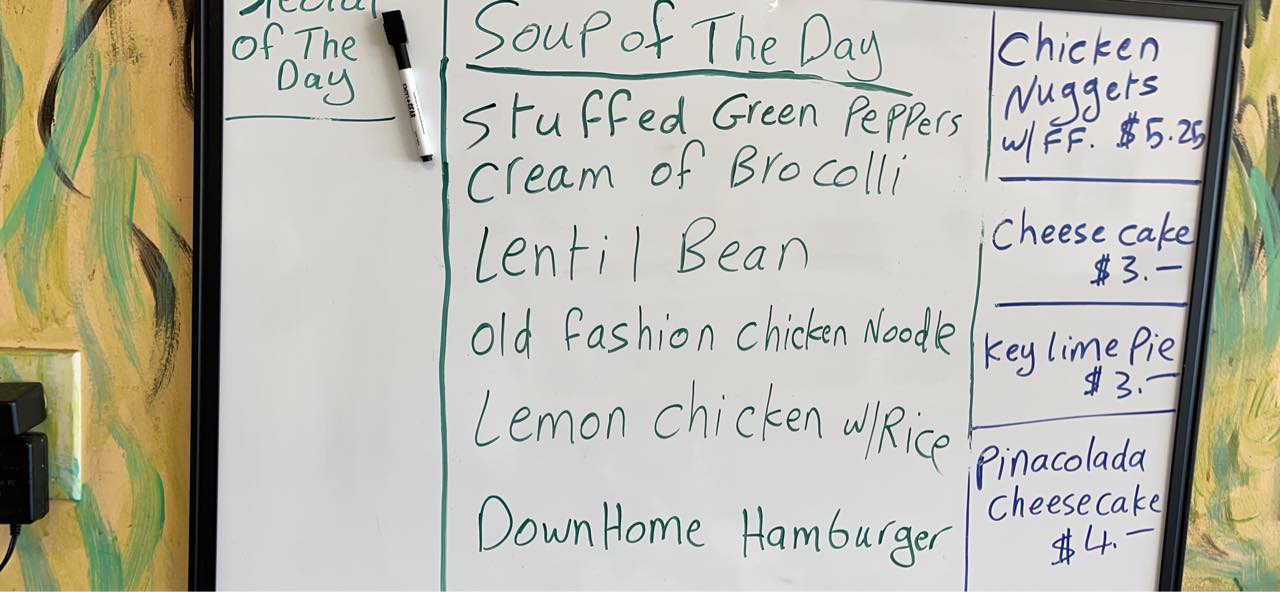 Special
of The
Day
Soup of The Day
Stuffed Green Peppers
Cream of Brocolli
Lentil Bean
old fashion chicken Noodle
Lemon chicken w/Rice
DownHome Hamburger
Chicken
Nuggets
w/ FF. $5.25
Cheese cake
$3.—
Key lime Pie
$3.—
Pinacolada
Cheesecake
$4.—